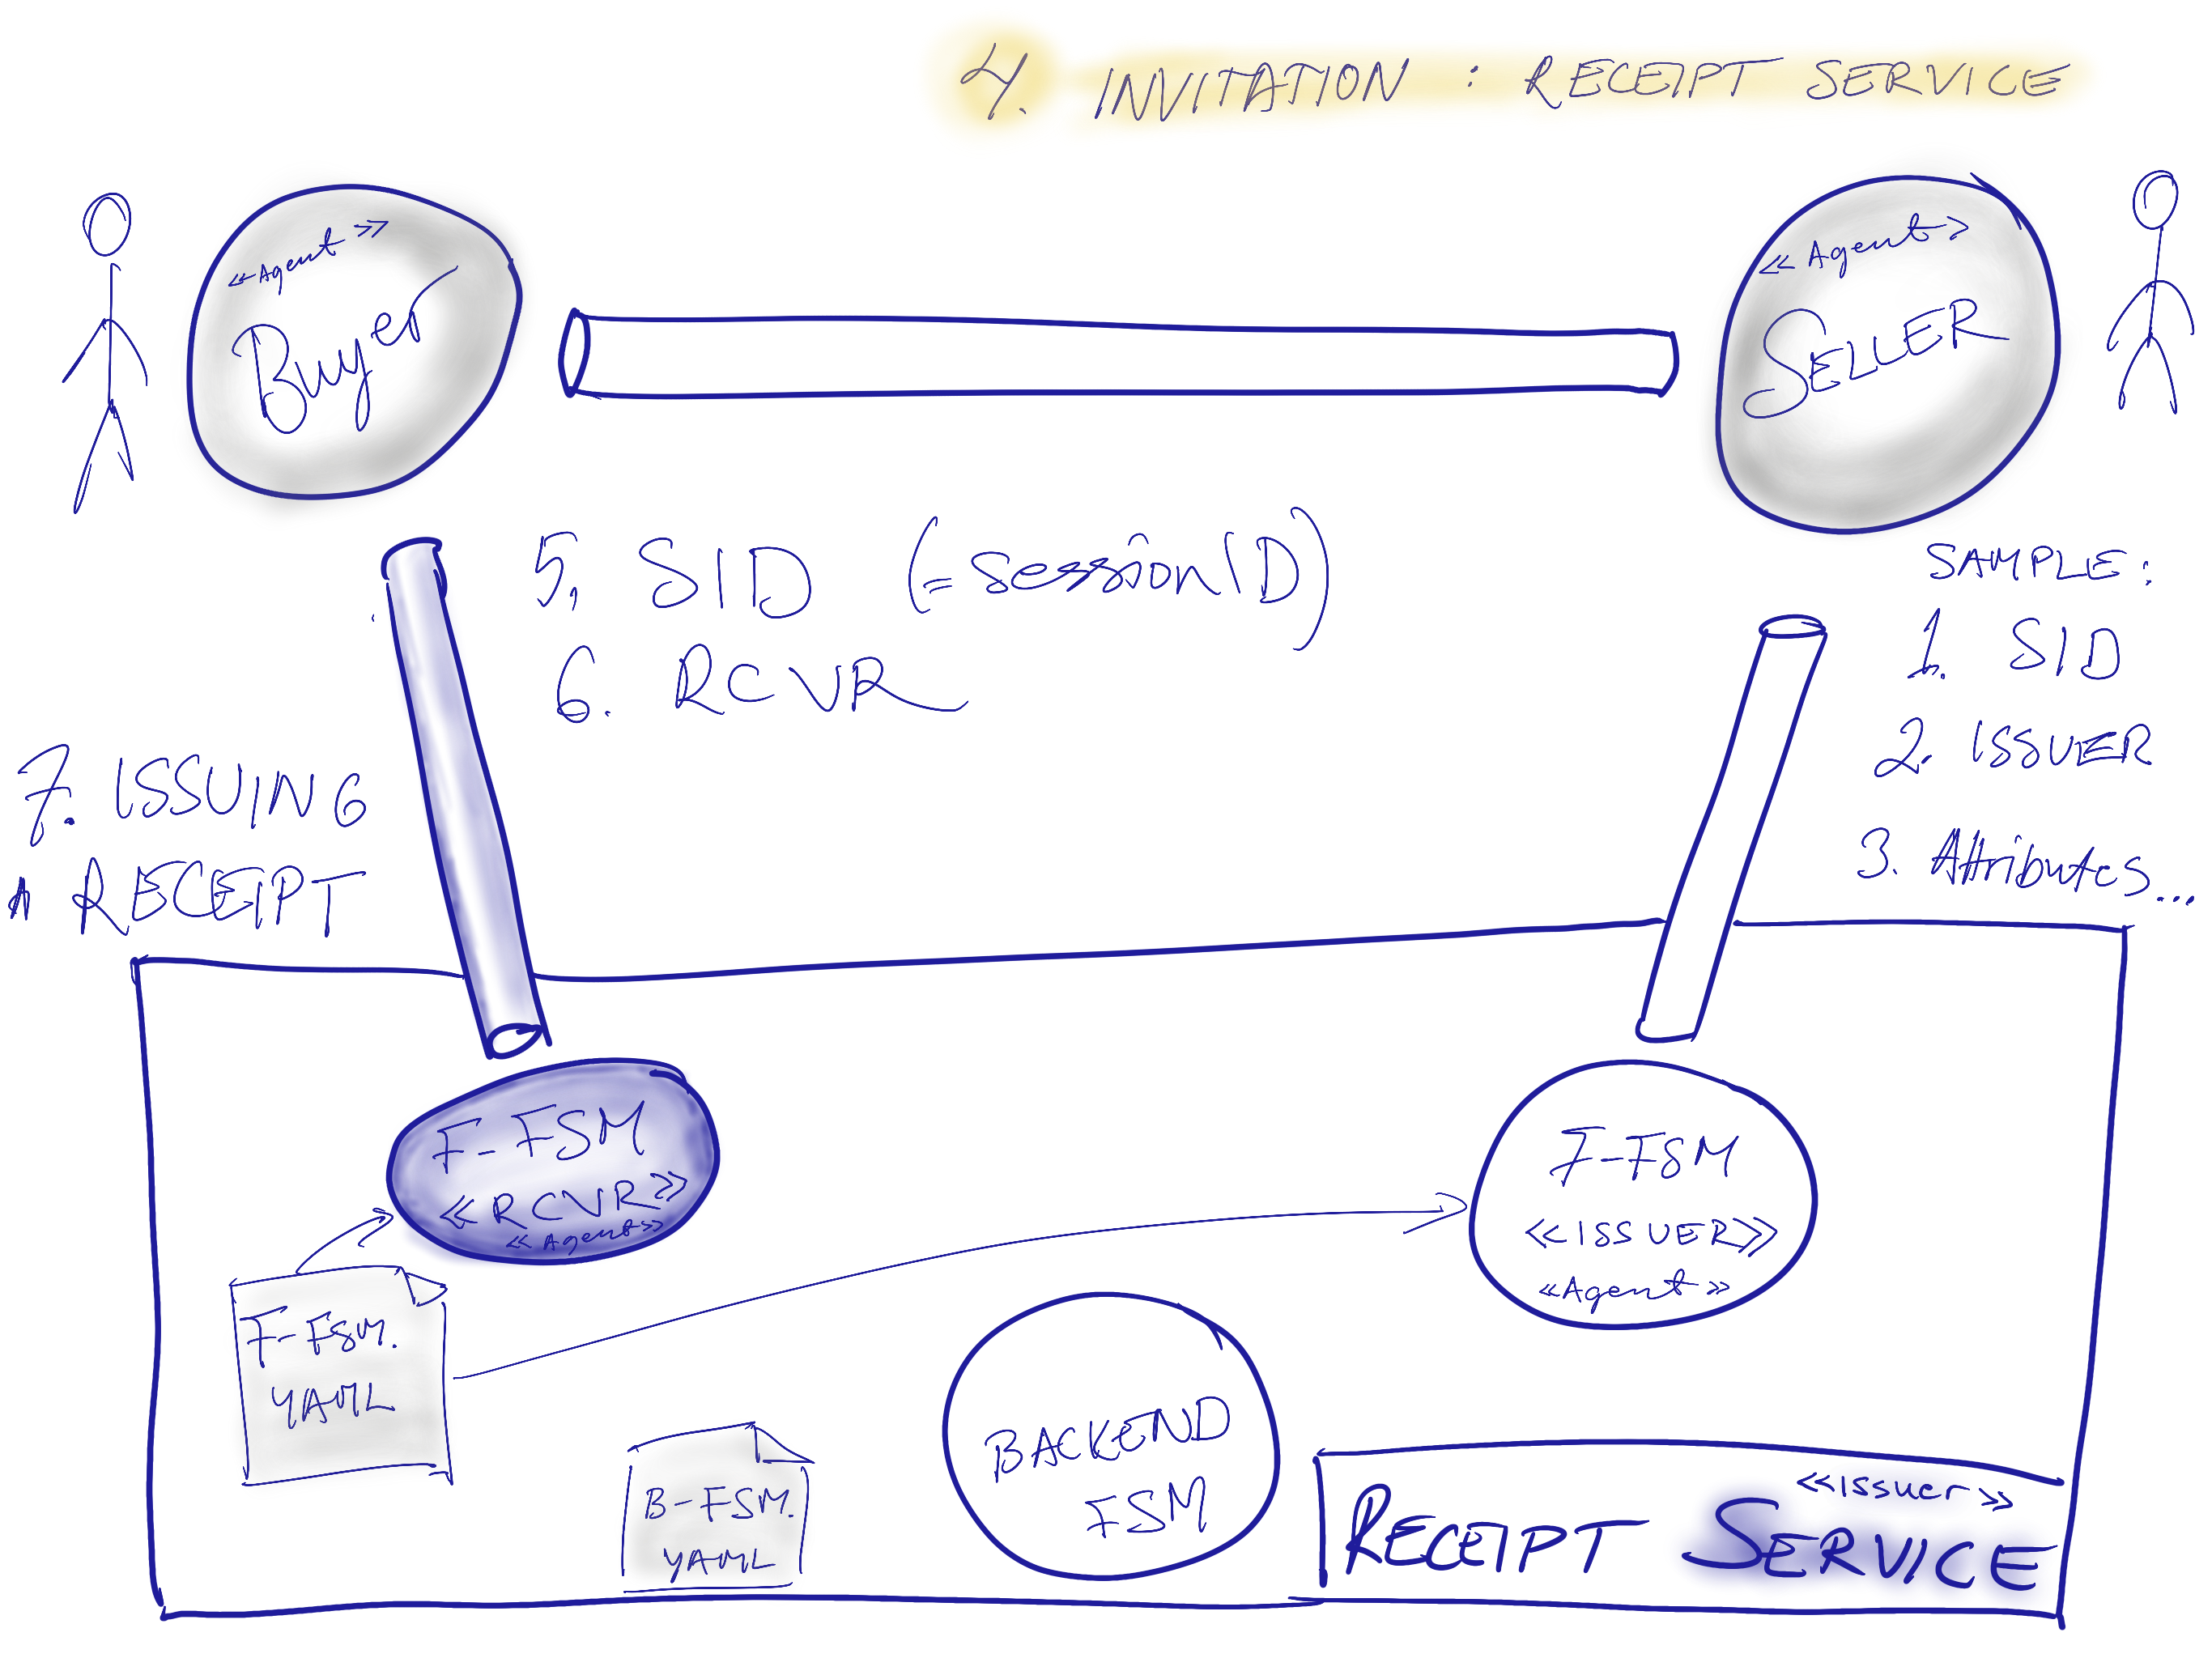 4. INVITATION : RECEIPT SERVICE
<<Agent>>
Buyer
<<Agent>
SELLER
5. SID (=sessionID)
6. RCVR
SAMPLE:
1. SID
2. ISSUER
3. Attributes...
7. ISSUING
A RECEIPT
F-FSM
<<RCVR>>
<<Agent>>
F-FSM
<<ISSUER>>
<<Agent>>
F-FSM.
YAML
B-FSM.
YAML
BACKEND
FSM
<<issuer>>
RECEIPT SERVICE